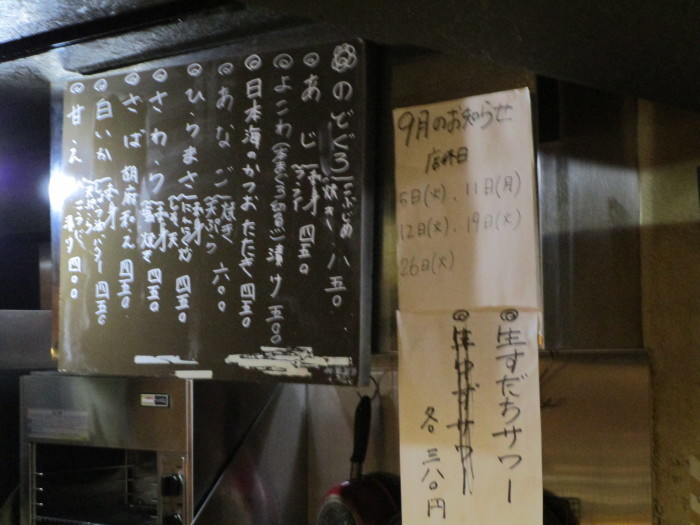 のどぐろ こぶじめ 焼き 八五〇
あじ 刺身 フライ 四五〇
よこわ 漬け 五〇〇
日本海のかつおたたき 四五〇
あなご 焼き 天ぷら 六〇〇
ひらまさ 刺身 四五〇
さわら 刺身 焼き 四五〇
さば 胡麻和え 四五〇
白いか 刺身 バター 天ぷら 四五〇
甘え 漬け 四〇〇
9月のお知らせ
店休日
5日(火)、11日(月)
12日(火)、19日(火)
26日(火)
◎生すだちサワー
◎生ゆずサワー
各 三八〇円